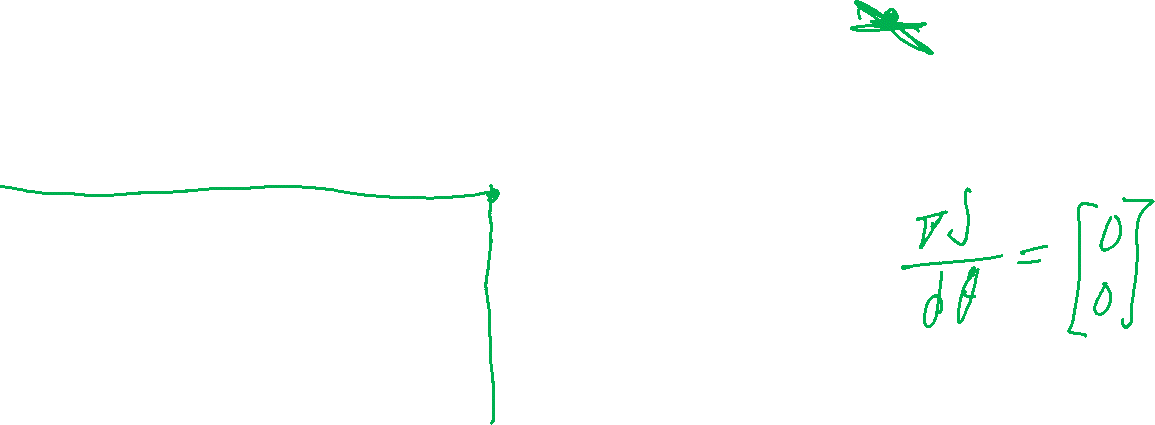 ∇J
dθ = [0
0]